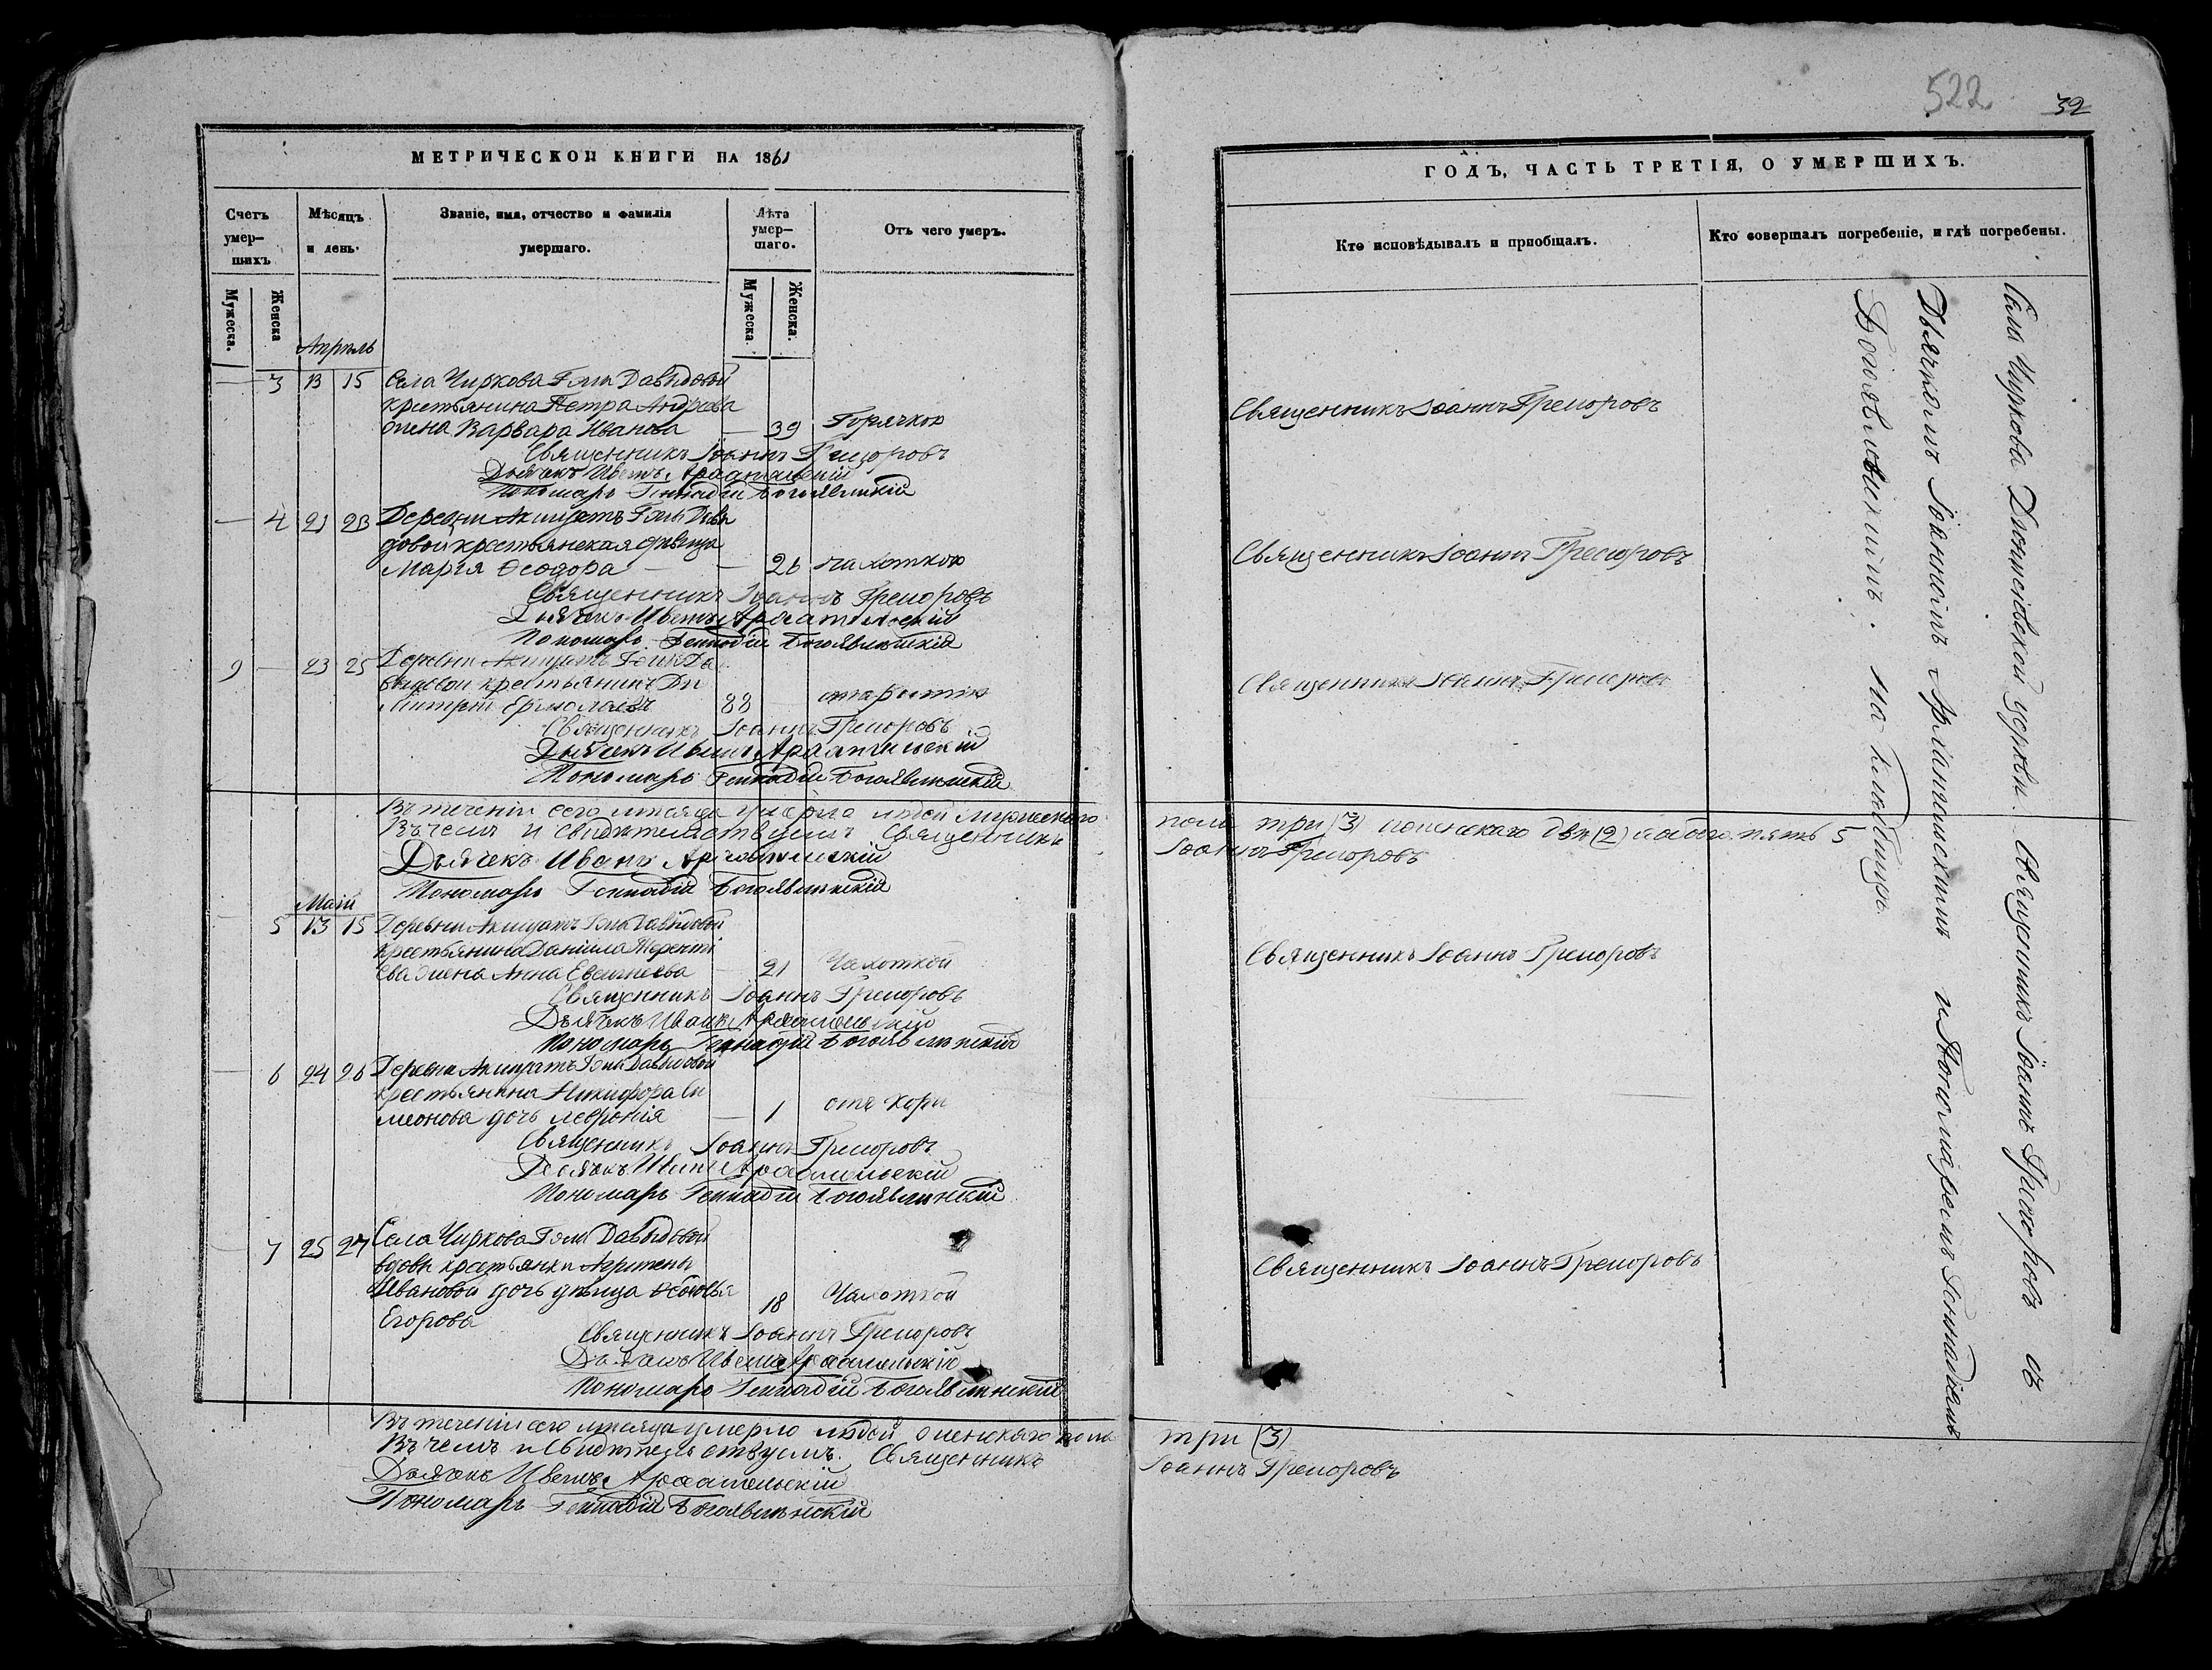 522
32
МЕТРИЧЕСКОЙ КНИГИ НА 1861
Счетъ умер-шихъ
Мѣсяцъ и день.
Званіе, имя, отчество и фамилія умершаго.
Лѣта умер-шаго.
Отъ чего умеръ.
Мужеска.
Женска
Мужеска.
Женска.
Апрѣль
— 3 13 15 Села Чиркова Г-жи Давыдовой
крестьянина Петра Андреева
жена Варвара Иванова — 39 Горячкою
Священникъ Іоаннъ Григоровъ
Дьячекъ Иванъ Архангельскій
Пономарь Геннадій Богоявленскій
— 4 21 23 Деревни Г-жи Давы
довой крестьянская дѣвица
Марія Ѳеодора — — 26 чахоткою
Священникъ Іоаннъ Григоровъ
Дьячекъ Иванъ Архангельскій
Пономарь Геннадій Богоявленскій
9 — 23 25 Деревни Г-жи Да
выдовой крестьянинъ Ди
митрій Ермолаевъ 88 — старостію
Священникъ Іоаннъ Григоровъ
Дьячекъ Иванъ Архангельскій
Пономарь Геннадій Богоявленскій
Въ теченіи сего мѣсяца умерло людей мужескаго
Въ чемъ и свидѣтельствуемъ Священникъ
Дьячекъ Иванъ Архангельскій
Пономарь Геннадій Богоявленскій
Май
— 5 13 15 Деревни Г-жи Давыдовой
крестьянина Даніила Теренті
ева жена Анна Евсигнеева — 21 Чахоткой
Священникъ Іоаннъ Григоровъ
Дьячекъ Иванъ Архангельскій
Пономарь Геннадій Богоявленскій
— 6 24 26 Деревни Г-жи Давыдовой
крестьянина Никифора Си
меонова дочь Невронія — 1 отъ кори
Священникъ Іоаннъ Григоровъ
Дьячекъ Иванъ Архангельскій
Пономарь Геннадій Богоявленскій
— 7 25 27 Села Чиркова Г-жи Давыдовой
вдовы крестьянки Агрипены
Ивановой дочь дѣвица 18 Чахоткой
Егорова
Священникъ Іоаннъ Григоровъ
Дьячекъ Иванъ Архангельскій
Пономарь Геннадій Богоявленскій
Въ теченіи сего мѣсяца умерло людей женскаго пола
Въ чемъ и свидѣтельствуемъ. Священникъ
Дьячекъ Иванъ Архангельскій
Пономарь Геннадій Богоявленскій
ГОДЪ, ЧАСТЬ ТРЕТІЯ, О УМЕРШИХЪ.
Кто исповѣдывалъ и пріобщалъ.
Кто совершалъ погребеніе, и гдѣ погребены.
Священникъ Іоаннъ Григоровъ
Священникъ Іоаннъ Григоровъ
Священникъ Іоаннъ Григоровъ
пола три (3) женскаго двѣ (2) а обоего пять 5
Іоаннъ Григоровъ
Священникъ Іоаннъ Григоровъ
Священникъ Іоаннъ Григоровъ
три (3)
Іоаннъ Григоровъ
Села Чиркова церкви Священникъ Іоаннъ Григоровъ съ
Дьячкомъ Іоанномъ Архангельскимъ и Пономаремъ Геннадіемъ
Богоявленскимъ. На кладбищѣ.